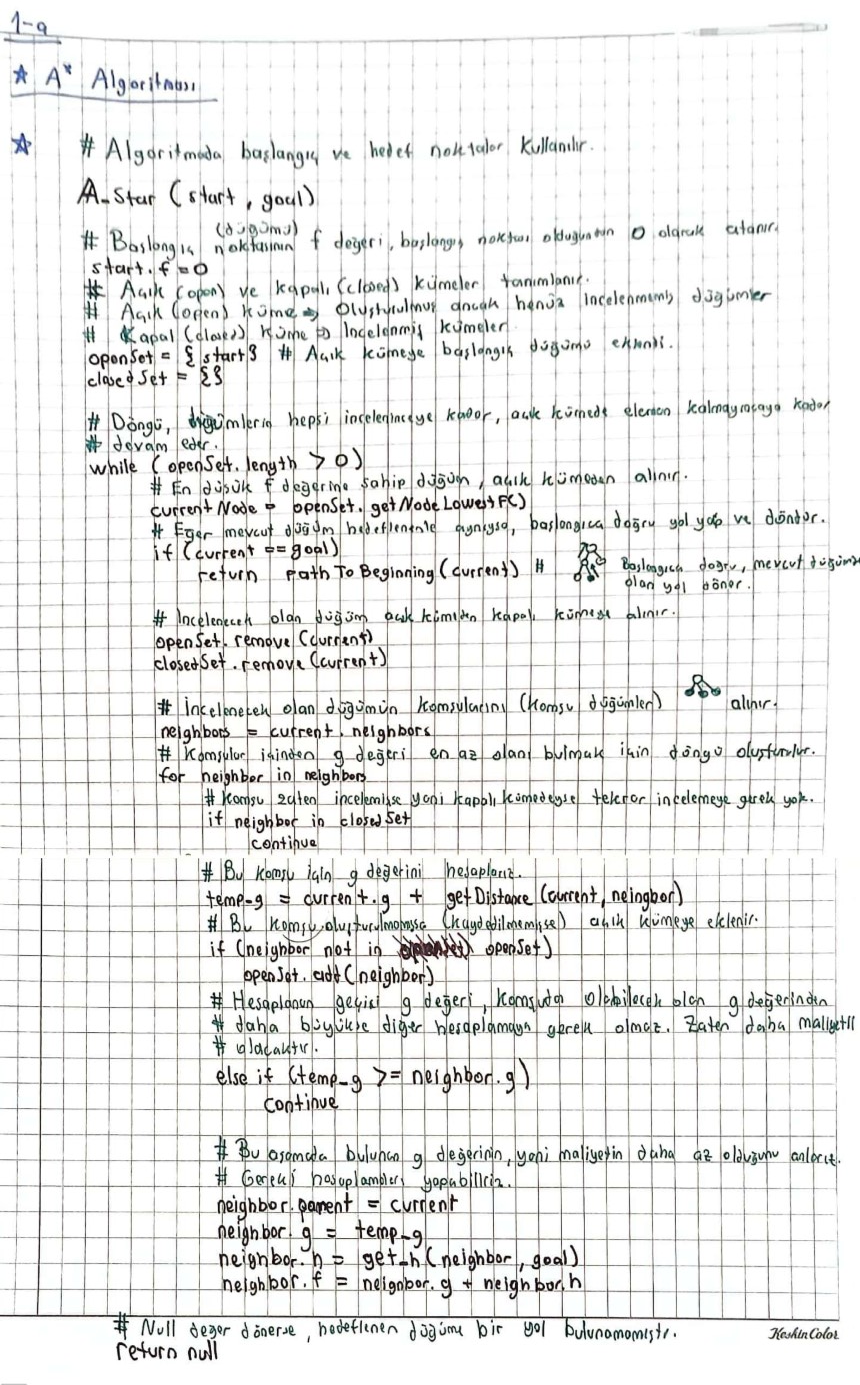 1-a
☆ A* Algoritması
☆ # Algoritmada başlangıç ve hedef noktalar kullanılır.
A_Star (start, goal)
(düğümü)
# Başlangıç noktasının f değeri, başlangıç noktası olduğundan 0 olarak atanır.
start.f = 0
# Açık (open) ve kapalı (closed) kümeler tanımlanır.
# Açık (open) küme => Oluşturulmuş ancak henüz incelenmemiş düğümler
# Kapal (closed) küme => İncelenmiş kümeler
openSet = {start} # Açık kümeye başlangıç düğümü eklendi.
closedSet = {}
# Döngü, düğümlerin hepsi inceleninceye kadar, açık kümede eleman kalmayıncaya kadar
# devam eder.
while (openSet.length > 0)
# En düşük f değerine sahip düğüm, açık kümeden alınır.
currentNode = openSet.getNodeLowestF()
# Eğer mevcut düğüm hedeflenenle aynıysa, başlangıca doğru yol yap ve döndür.
if (current == goal)
return pathToBeginning(current) # Başlangıca doğru, mevcut düğüme
olan yol döner.
# İncelenecek olan düğüm açık kümeden kapalı kümeye alınır.
openSet.remove(current)
closedSet.remove(current)
# İncelenecek olan düğümün komşularını (komşu düğümler) alınır.
neighbors = current.neighbors
# Komşular içinden g değeri en az olanı bulmak için döngü oluşturulur.
for neighbor in neighbors
# Komşu zaten incelemişse yani kapalı kümedeyse tekrar incelemeye gerek yok.
if neighbor in closedSet
continue
# Bu komşu için g değerini hesaplarız.
temp_g = current.g + getDistance(current, neingbor)
# Bu komşu oluşturulmamışsa (kaydedilmemişse) açık kümeye eklenir.
if (neighbor not in openSet)
openSet.add(neighbor)
# Hesaplanan geçici g değeri, komşuda olabilecek olan g değerinden
# daha büyükse diğer hesaplamaya gerek olmaz. Zaten daha maliyetli
# olacaktır.
else if (temp_g >= neighbor.g)
continue
# Bu aşamada bulunan g değerinin, yani maliyetin daha az olduğunu anlarız.
# Gerekli hesaplamaları yapabiliriz.
neighbor.parent = current
neighbor.g = temp_g
neighbor.h = get_h(neighbor, goal)
neighbor.f = neighbor.g + neighbor.h
# Null değer dönerse, hedeflenen düğüme bir yol bulunamamıştır.
return null
KeskinColor